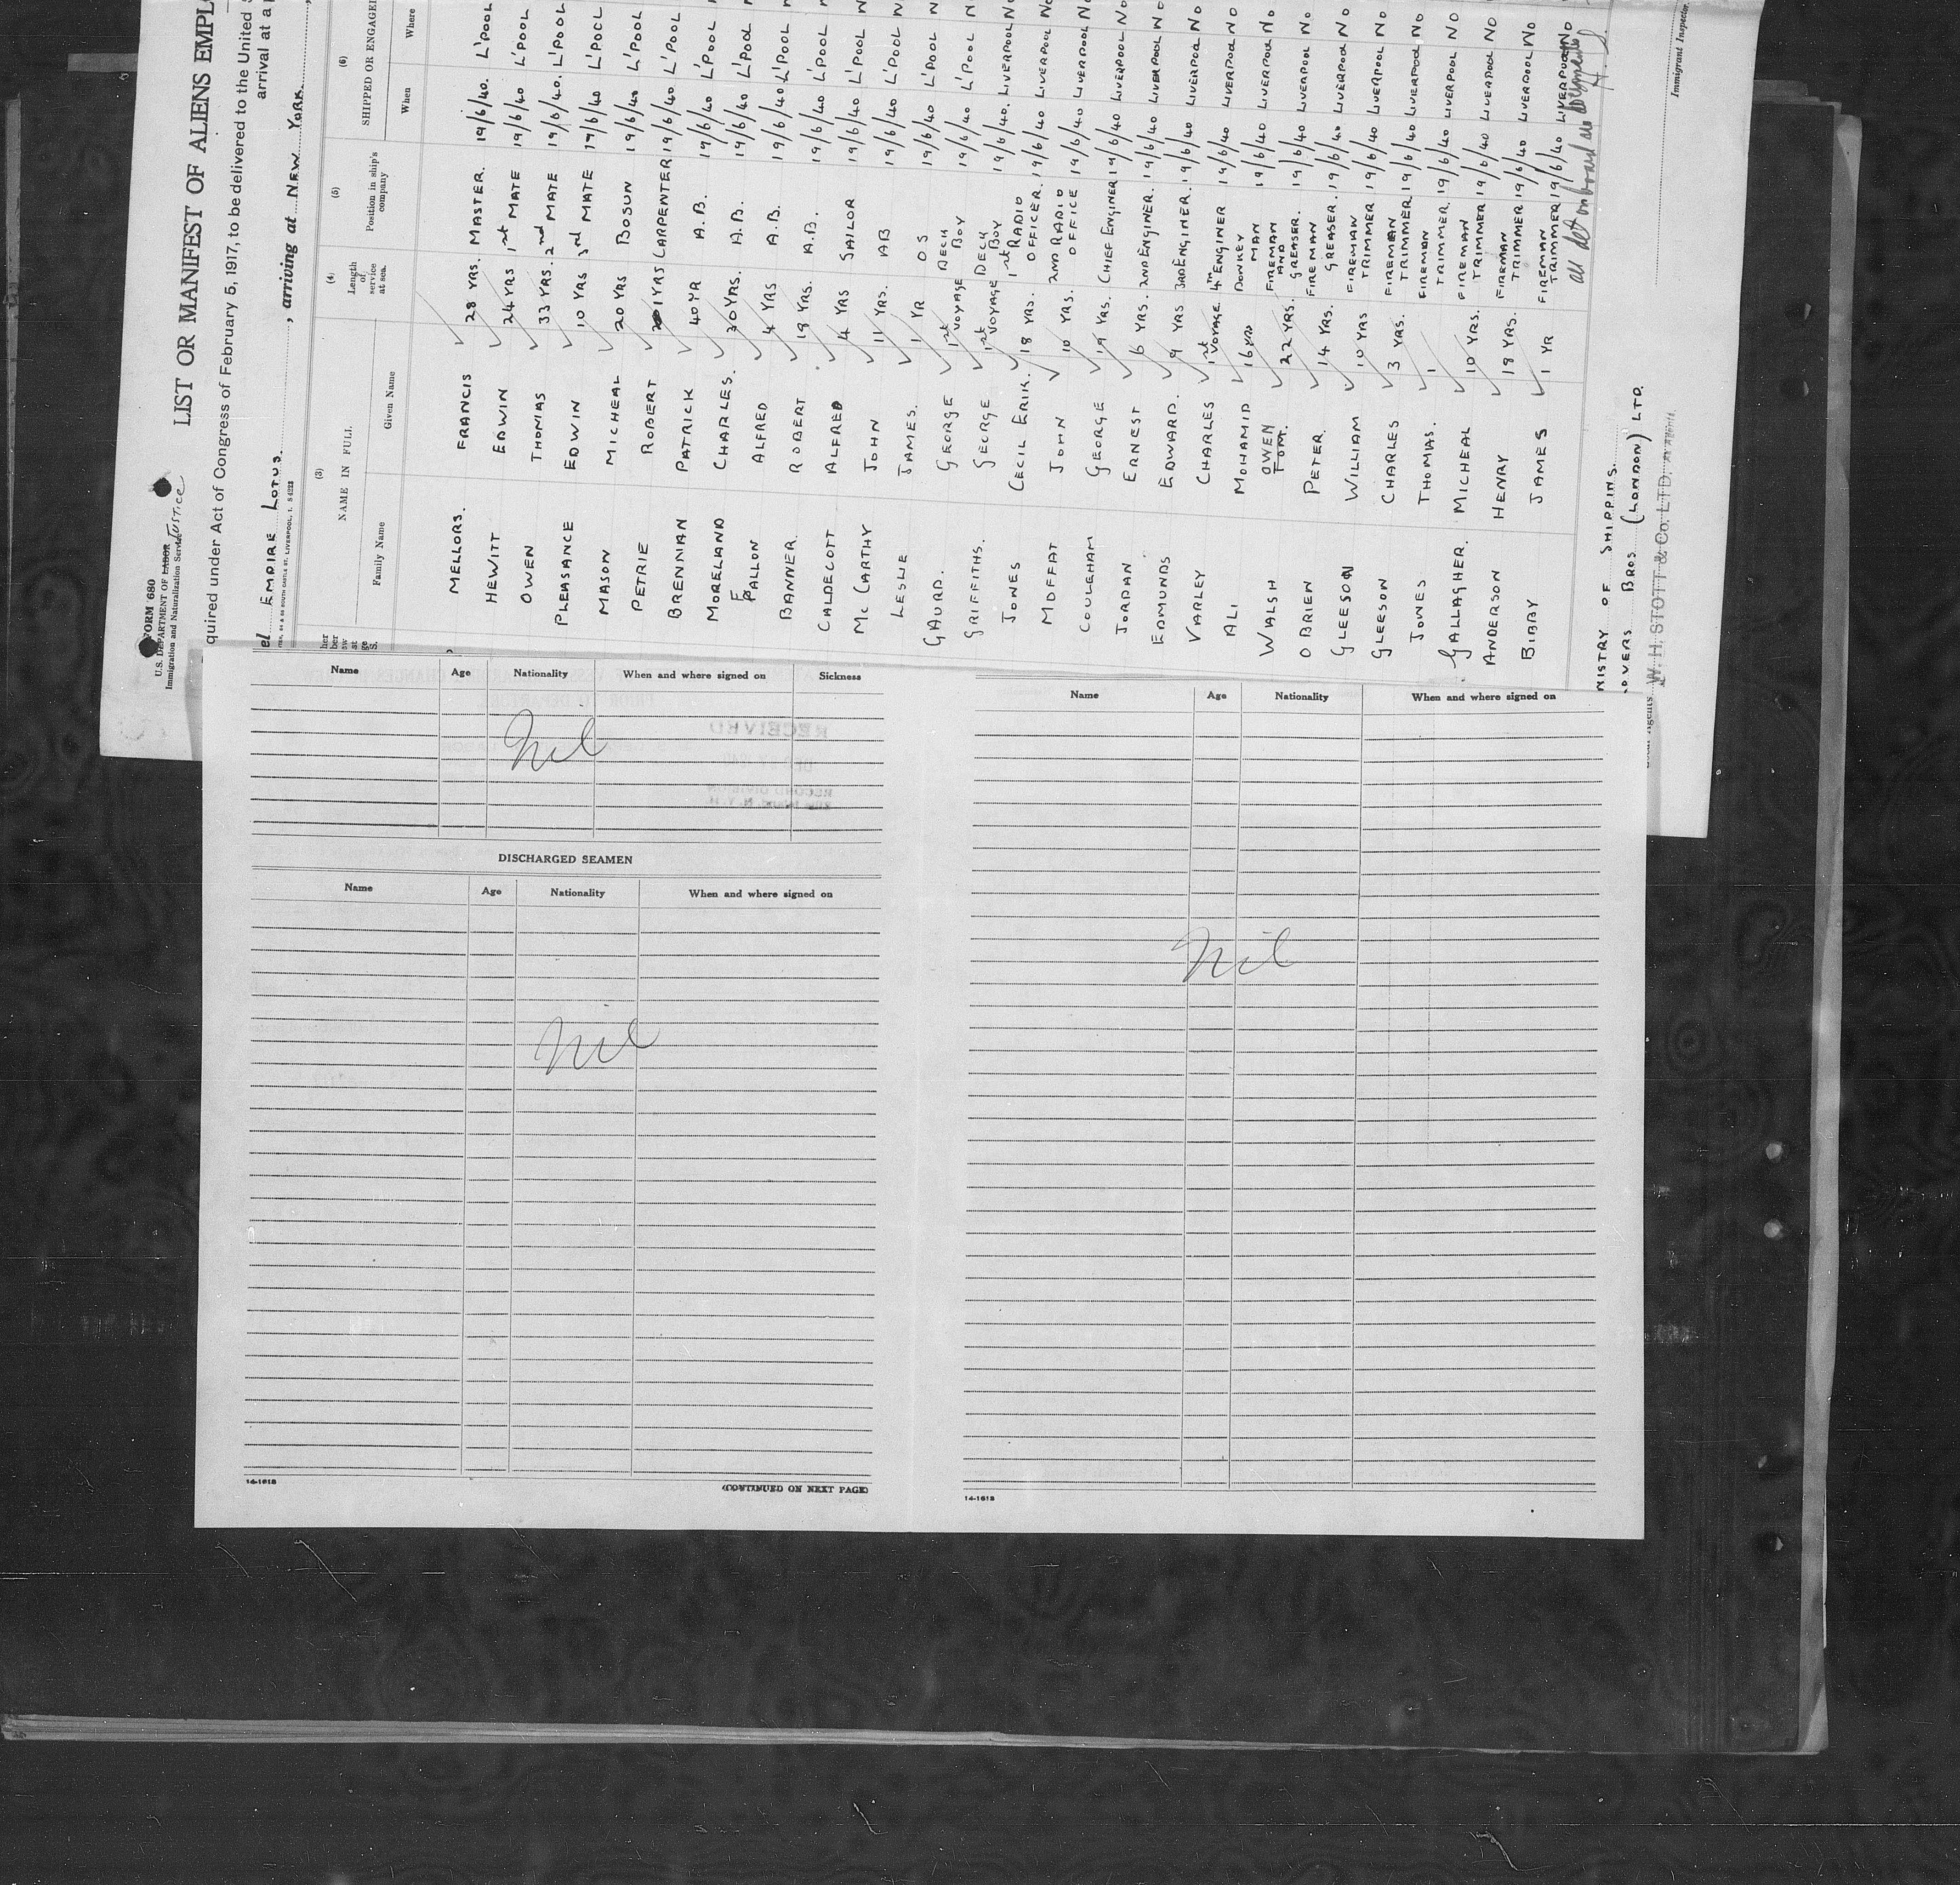 FORM 680
U.S. DEPARTMENT OF LABOR JUSTICE
Immigration and Naturalization Service
LIST OR MANIFEST OF ALIENS EMPL
quired under Act of Congress of February 5, 1917, to be delivered to the United S
arrival at a p
el EMPIRE LOTUS , arriving at NEW YORK.
(3) (4) (5) (6)
NAME IN FULL Length of service at sea. Position in ship's company SHIPPED OR ENGAGED
Family Name Given Name When Where
MELLORS. FRANCIS 28 YRS. MASTER. 19/6/40. L'POOL
HEWITT EDWIN 24 YRS 1st MATE 19/6/40 L'POOL
OWEN THOMAS 33 YRS. 2nd MATE 19/6/40. L'POOL
PLEASANCE EDWIN 10 YRS 3rd MATE 19/6/40 L'POOL
MASON MICHEAL 20 YRS BOSUN 19/6/40 L'POOL
PETRIE ROBERT 1 YRS CARPENTER 19/6/40 L'POOL
BRENNAN PATRICK 40 YR A.B. 19/6/40 L'POOL
MORELAND CHARLES. 30 YRS. A.B. 19/6/40 L'POOL
FALLON ALFRED 4 YRS A.B. 19/6/40 L'POOL
BANNER ROBERT 19 YRS. A.B. 19/6/40 L'POOL
CALDECOTT ALFRED 4 YRS SAILOR 19/6/40 L'POOL
McCARTHY JOHN 11 YRS. AB 19/6/40 L'POOL
LESLIE JAMES. 1 YR O S 19/6/40 L'POOL
GAURD. GEORGE 1st VOYAGE DECK BOY 19/6/40 L'POOL
GRIFFITHS. GEORGE 1st VOYAGE DECK BOY 19/6/40. LIVERPOOL NO
JONES CECIL ERIK. 18 YRS. 1st RADIO OFFICER. 19/6/40 LIVERPOOL NO
MOFFAT JOHN 10 YRS. 2ND RADIO OFFICE 19/6/40 LIVERPOOL NO
COULEHAM GEORGE 19 YRS. CHIEF ENGINER 19/6/40 LIVERPOOL NO
JORDAN ERNEST 6 YRS. 2ND ENGINER. 19/6/40 LIVERPOOL NO
EDMUNDS EDWARD. 9 YRS 3RD ENGINER. 19/6/40 LIVERPOOL NO
VARLEY CHARLES 1st VOYAGE. 4TH ENGINER 19/6/40 LIVERPOOL NO
ALI MOHAMID 16 YRS DONKEY MAN 19/6/40 LIVERPOOL NO
WALSH OWEN TOM. 22 YRS. FIREMAN AND GREASER. 19/6/40 LIVERPOOL NO
O BRIEN PETER. 14 YRS. FIREMAN GREASER. 19/6/40 LIVERPOOL NO
GLEESON WILLIAM 10 YRS FIREMAN TRIMMER 19/6/40 LIVERPOOL NO
GLEESON CHARLES 3 YRS. FIREMAN TRIMMER 19/6/40 LIVERPOOL NO
JONES THOMAS. 1 FIREMAN TRIMMER 19/6/40 LIVERPOOL NO
GALLAGHER. MICHEAL 10 YRS. FIREMAN TRIMMER 19/6/40 LIVERPOOL NO
ANDERSON HENRY 19 YRS. FIREMAN TRIMMER 19/6/40 LIVERPOOL NO
BIBBY JAMES 1 YR FIREMAN TRIMMER 19/6/40 LIVERPOOL NO
all on board
NISTRY OF SHIPPING.
BROS (LONDON) LTD.
W. H. STOTT & Co. LTD.
Immigrant Inspector.
Name Age Nationality When and where signed on Sickness
Nil
DISCHARGED SEAMEN
Name Age Nationality When and where signed on
Nil
14-1618
(CONTINUED ON NEXT PAGE)
Name Age Nationality When and where signed on
Nil
14-1618